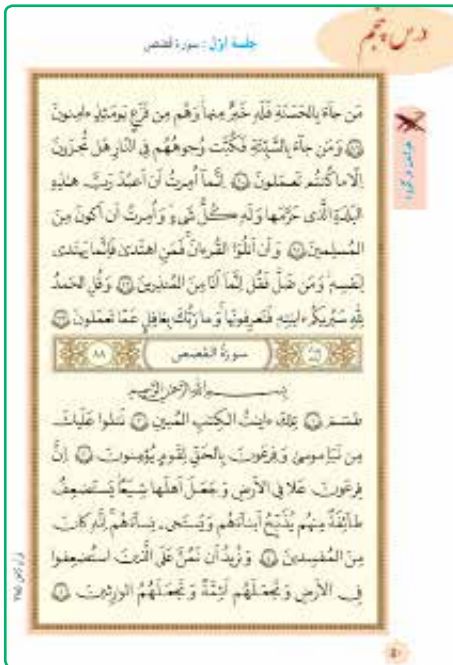 درس پنجم
جلسهٔ اوّل : سورهٔ قصص
مَن جاءَ بِالحَسَنَةِ فَلَهُ خَيرٌ مِنها وَهُم مِن فَزَعٍ يَومَئِذٍ ءامِنونَ
﴿٨٩﴾ وَمَن جاءَ بِالسَّيِّئَةِ فَكُبَّت وُجوهُهُم فِي النّارِ هَل تُجزَونَ
إِلّا ما كُنتُم تَعمَلونَ ﴿٩٠﴾ إِنَّما أُمِرتُ أَن أَعبُدَ رَبَّ هٰذِهِ
البَلدَةِ الَّذي حَرَّمَها وَلَهُ كُلُّ شَيءٍ وَأُمِرتُ أَن أَكونَ مِنَ
المُسلِمينَ ﴿٩١﴾ وَأَن أَتلُوَا القُرءانَ فَمَنِ اهتَدىٰ فَإِنَّما يَهتَدي
لِنَفسِهِ وَمَن ضَلَّ فَقُل إِنَّما أَنا مِنَ المُنذِرينَ ﴿٩٢﴾ وَقُلِ الحَمدُ
لِلّٰهِ سَيُريكُم ءايٰتِهِ فَتَعرِفونَها وَما رَبُّكَ بِغافِلٍ عَمّا تَعمَلونَ ﴿٩٣﴾
سورَةُ القَصَص
٨٨
بِسمِ اللّٰهِ الرَّحمٰنِ الرَّحيمِ
طسم ﴿١﴾ تِلكَ ءايٰتُ الكِتٰبِ المُبينِ ﴿٢﴾ نَتلوا عَلَيكَ
مِن نَبَإِ موسىٰ وَفِرعَونَ بِالحَقِّ لِقَومٍ يُؤمِنونَ ﴿٣﴾ إِنَّ
فِرعَونَ عَلا فِي الأَرضِ وَجَعَلَ أَهلَها شِيَعًا يَستَضعِفُ
طائِفَةً مِنهُم يُذَبِّحُ أَبناءَهُم وَيَستَحيي نِساءَهُم إِنَّهُ كانَ
مِنَ المُفسِدينَ ﴿٤﴾ وَنُريدُ أَن نَمُنَّ عَلَى الَّذينَ استُضعِفوا
فِي الأَرضِ وَنَجعَلَهُم أَئِمَّةً وَنَجعَلَهُمُ الوٰرِثينَ ﴿٥﴾